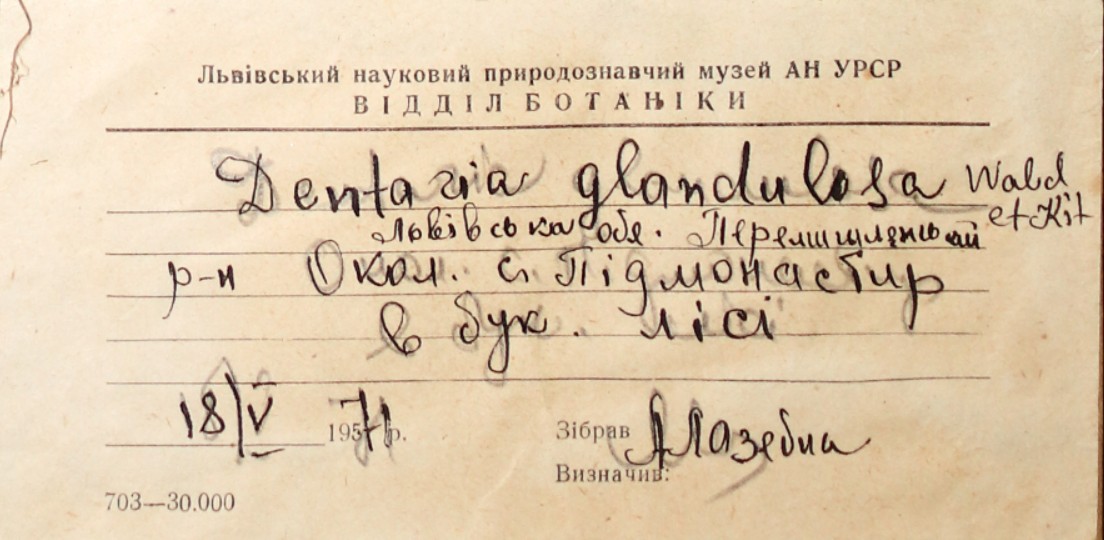 Львівський науковий природознавчий музей АН УРСР
ВІДДІЛ БОТАНІКИ
Dentaria glandulosa Wald
et Kit
Львівська обл. Перемишлянський
р-н Окол. с. Підмонастир
в бук. лісі
18/V 1971 р.
Зібрав А Лазебна
Визначив:
703—30.000